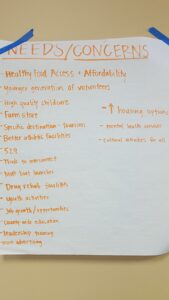 NEEDS/CONCERNS
- Healthy Food Access + Affordability
- Younger generation of volunteers
- High quality childcare
- Farm store
- Specific destination - tourism
- Better athletic facilities
- to interconnect
- boat launches
- Drug rehab facilities
- Youth activities
- Job growth/opportunities
- County wide education
- Leadership training
- advertising
- ↑ housing options
- mental health services
- cultural activities for all